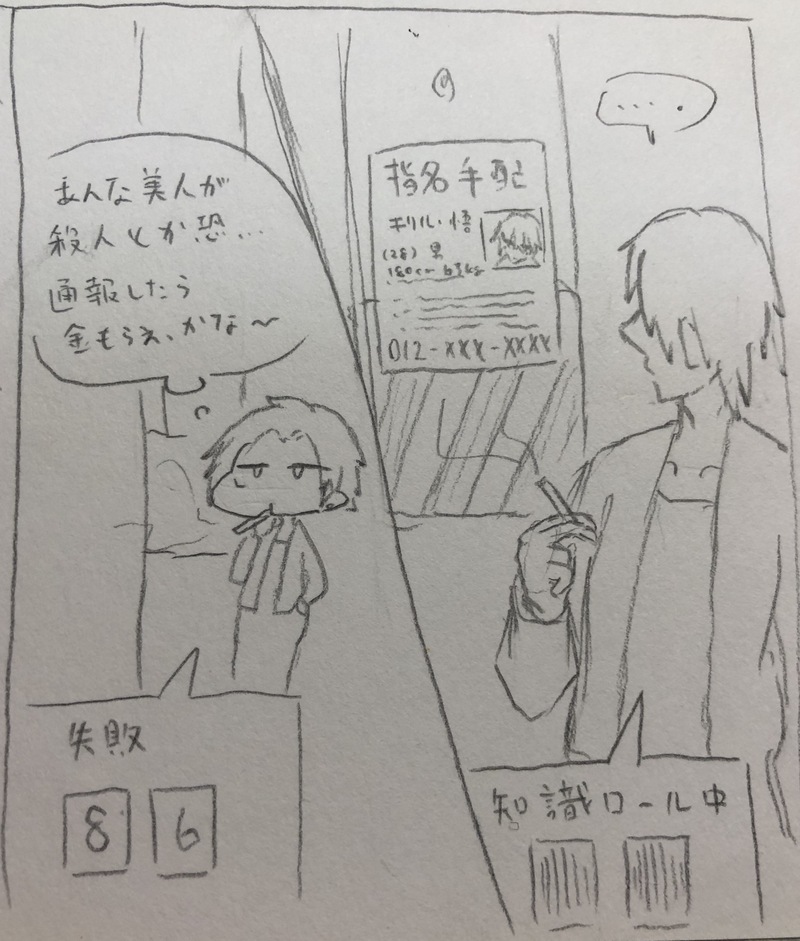 ……
指名手配
キリル・悟
(28) 男
180cm 63kg
012-XXX-XXXX
知識ロール中
あんな美人が
殺人とか恐…
通報したら
金もらえっかな〜
失敗
8 6